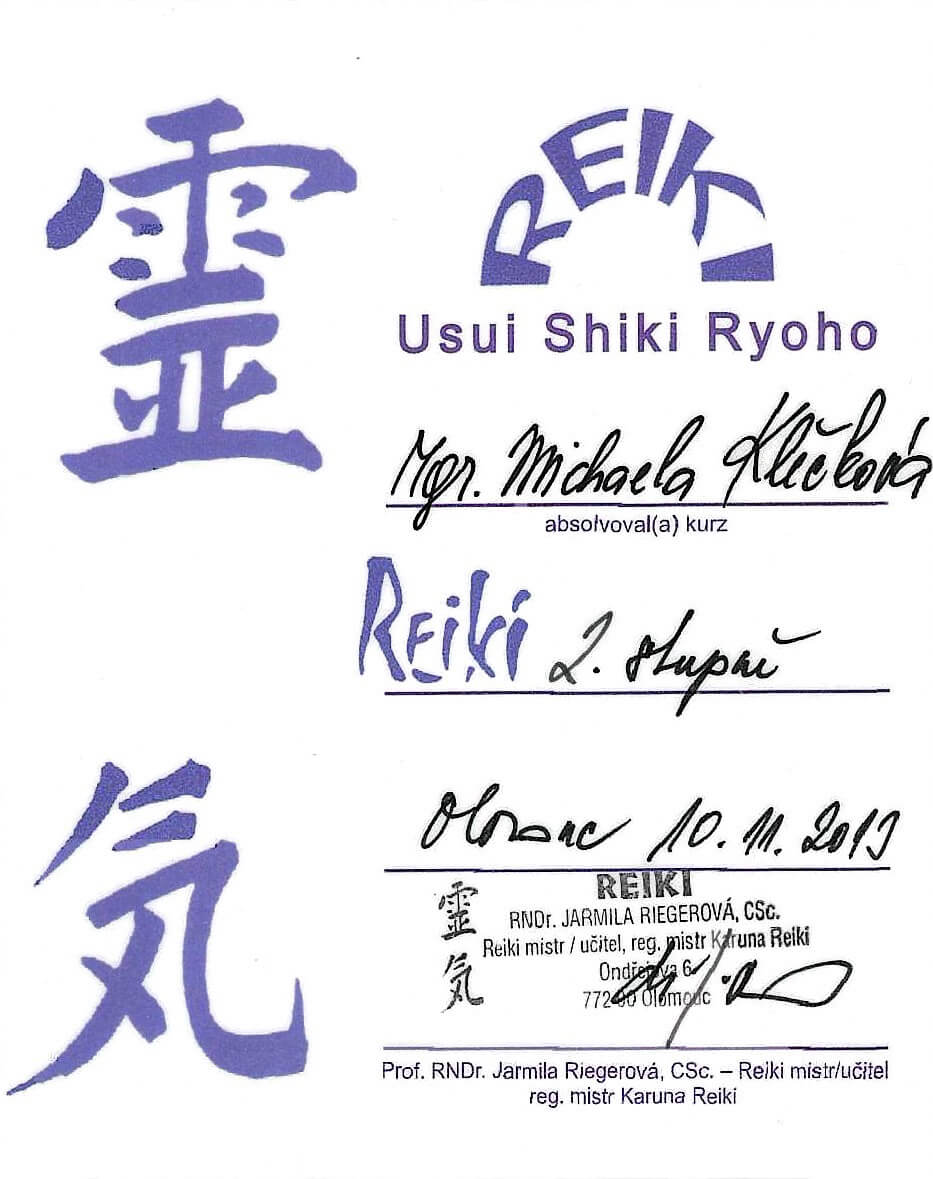 霊気
REIKI
Usui Shiki Ryoho
Mgr. Michaela Klečková
absolvoval(a) kurz
Reiki 2. stupeň
Olomouc 10. 11. 2013
霊気
REIKI
RNDr. JARMILA RIEGEROVÁ, CSc.
Reiki mistr / učitel, reg. mistr Karuna Reiki
Ondřejova 6
772 00 Olomouc
Prof. RNDr. Jarmila Riegerová, CSc. – Reiki mistr/učitel
reg. mistr Karuna Reiki